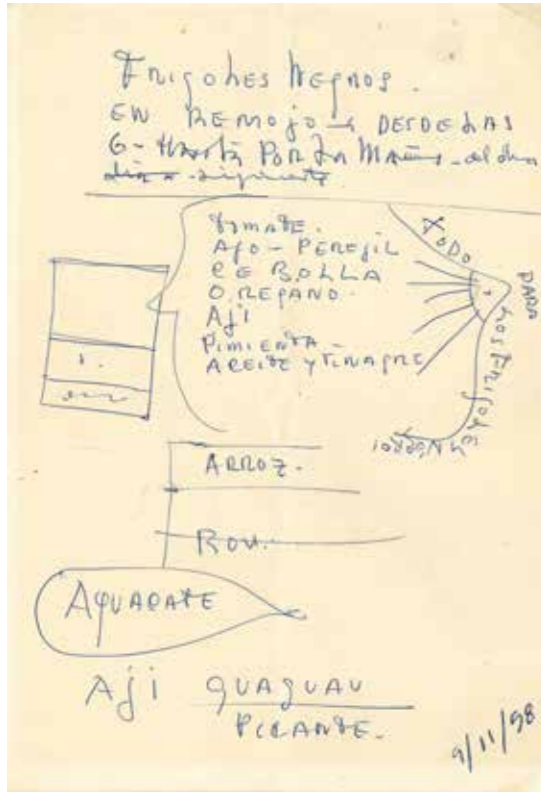 Frigoles Negros.
EN REMOJO DESDE LAS
6 - Hasta Por La Mañana - al dia
dia siguiente
TOMATE.
AJO - PEREJIL
CEBOLLA
OREGANO.
AJI
PIMIENTA -
ACEITE Y VINAGRE
TODO
PARA
LOS FRIGOLE
NEGROS
1.
ARROZ.
RON.
AGUACATE
AJI GUAGUAU
PICANTE.
9/11/98